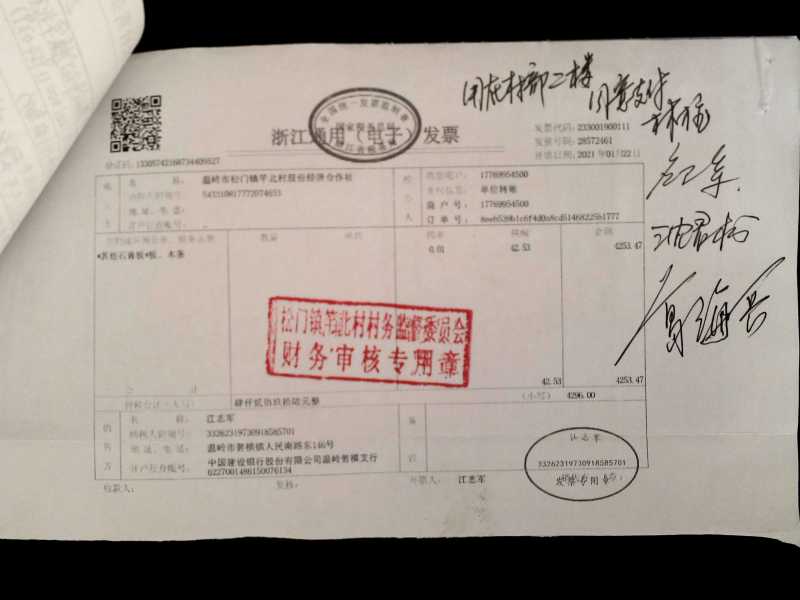 用在村部二楼
同意支付
全国统一发票监制章
国家税务总局
浙江省税务局
浙江通用(电子)发票
发票代码:233001900111
发票号码:28572461
开票日期:2021年01月22日
验证码:13305742168734409527
名 称: 温岭市松门镇苄北村股份经济合作社
543310817772074653
地址、电话:
开户行及账号:
17769954500
单位转账
商 户 号: 17769954500
订 单 号: 8eeb539b1c6f4d0a8cd51468225b1777
金额
*其他石膏板*板、木条
0.01
42.53
4253.47
松门镇苄北村村务监督委员会
财务审核专用章
合 计
42.53
4253.47
价税合计(大写)
肆仟贰佰玖拾陆元整
(小写)
4296.00
销售方
名 称: 江志军
纳税人识别号: 33262319730918585701
地址、电话: 温岭市箬横镇人民南路东146号
开户行及账号: 中国建设银行股份有限公司温岭箬横支行
6227001486150076134
备注
江志军
33262319730918585701
发票专用章
收款人:
复核:
开票人: 江志军